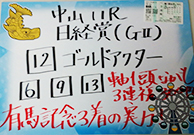 中山11R
日経賞(GⅡ)
12 ゴールドアクター
6 9 13
3連複
有馬記念3着の実力